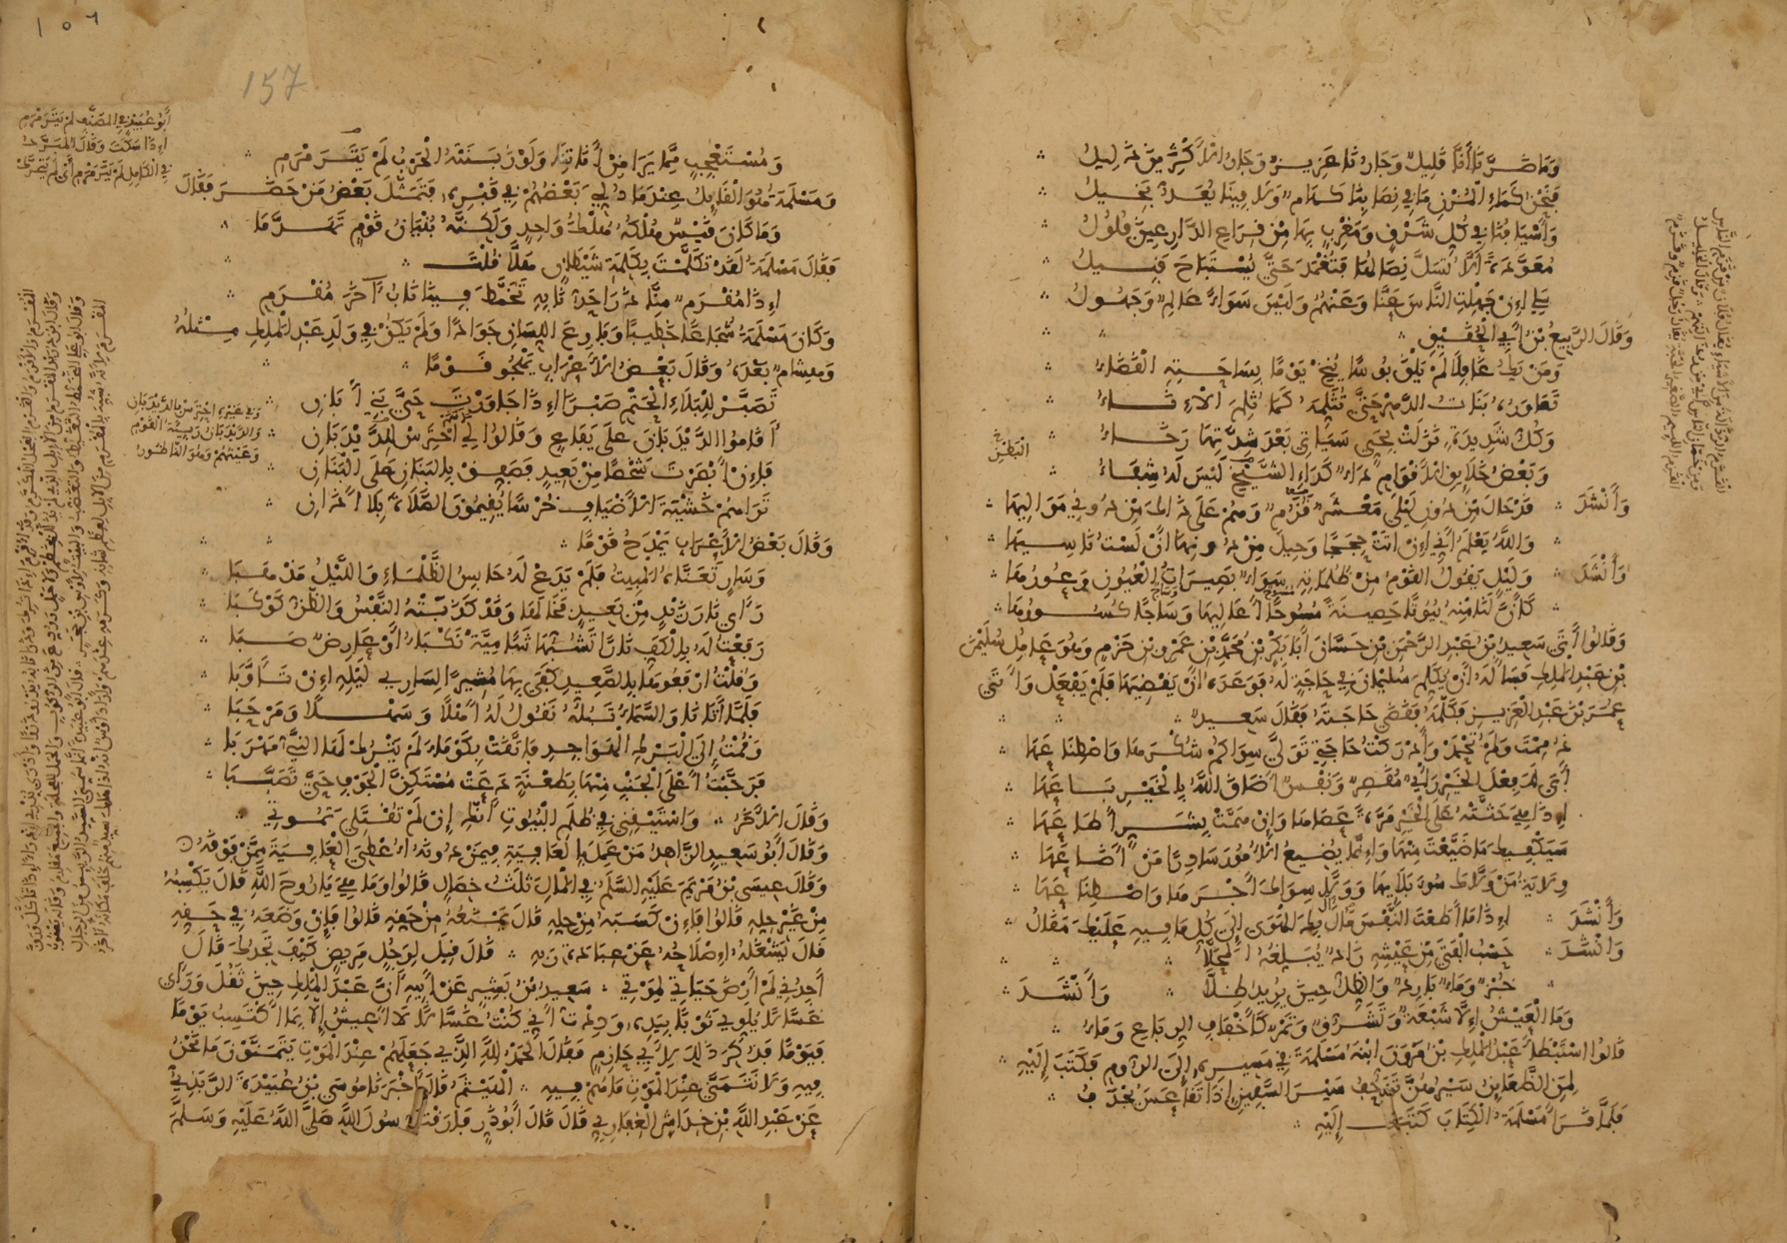 وَمَا ضَرَّنَا أَنَّا قَلِيلٌ وَجَارُنَا عَزِيزٌ وَجَارُ الأَكْثَرِينَ ذَلِيلُ
فَنَحْنُ كَمَاءِ الْمُزْنِ مَا فِي نِصَابِنَا كَهَامٌ وَلَا فِينَا يُعَدُّ بَخِيلُ
وَأَسْيَافُنَا فِي كُلِّ شَرْقٍ وَمَغْرِبٍ بِهَا مِنْ قِرَاعِ الدَّارِعِينَ فُلُولُ
مُعَوَّدَةً أَلَّا تُسَلَّ نِصَالُهَا فَتُغْمَدَ حَتَّى يُسْتَبَاحَ قَبِيلُ
سَلِي إِنْ جَهِلْتِ النَّاسَ عَنَّا وَعَنْهُمُ وَلَيْسَ سَوَاءً عَالِمٌ وَجَهُولُ
وَقَالَ الرَّبِيعُ بْنُ أَبِي الْحُقَيْقِ
وَمَنْ يَكُ عَاقِلًا لَمْ يَلْقَ بُؤْسًا يُنِخْ يَوْمًا بِسَاحَتِهِ الْقَضَاءُ
تَعَاوَرُهُ بَنَاتُ الدَّهْرِ حَتَّى تُثَلِّمَهُ كَمَا ثُلِمَ الْإِنَاءُ
وَكُلُّ شَدِيدَةٍ نَزَلَتْ بِحَيٍّ سَيَأْتِي بَعْدَ شِدَّتِهَا رَخَاءُ
وَبَعْضُ خَلَايِقِ الْأَقْوَامِ دَاءٌ كَدَاءِ الشَّيْخِ لَيْسَ لَهُ شِفَاءُ
الْبَطْنِ
وَأَنْشَدَ قَدْ حَالَ مِنْ دُونِ لَيْلَى مَعْشَرٌ قُزُمٌ وَهُمْ عَلَى ذَاكَ مِنْ دُونِي مَوَالِيهَا
وَاللَّهُ يَعْلَمُ أَنِّي إِنْ نَأَتْ حِجَجًا وَحِيلَ مِنْ دُونِهَا أَنْ لَسْتُ نَاسِيهَا
وَأَنْشَدَ وَلَيْلٍ يَقُولُ الْقَوْمُ مِنْ ظُلُمَاتِهِ سَوَاءٌ بَصِيرَاتُ الْعُيُونِ وَعُورُهَا
كَأَنَّ لَنَا مِنْهُ بُيُوتًا حَصِينَةً مُسُوحًا أَعَالِيهَا وَسَاجًا كُسُورُهَا
وَقَالُوا أَتَى سَعِيدُ بْنُ عَبْدِ الرَّحْمَنِ بْنِ حَسَّانَ أَبَا بَكْرِ بْنَ مُحَمَّدِ بْنِ عَمْرِو بْنِ حَزْمٍ وَهُوَ عَامِلُ سُلَيْمَانَ
بْنِ عَبْدِ الْمَلِكِ فَسَأَلَهُ أَنْ يُكَلِّمَ سُلَيْمَانَ فِي حَاجَةٍ لَهُ فَوَعَدَهُ أَنْ يَقْضِيَهَا فَلَمْ يَفْعَلْ وَأَتَى
عُمَرَ بْنَ عَبْدِ الْعَزِيزِ فَكَلَّمَهُ فَقَضَى حَاجَتَهُ فَقَالَ سَعِيدٌ
ذُمِمْتَ وَلَمْ تُحْمَدْ وَأَدْرَكْتُ حَاجَتِي تَوَلَّى سِوَاكُمْ شُكْرَهَا وَاصْطِنَاعَهَا
أَبَى لَكَ فِعْلَ الْخَيْرِ رَأْيٌ مُقَصِّرٌ وَنَفْسٌ أَضَاقَ اللَّهُ بِالْخَيْرِ بَاعَهَا
إِذَا هِيَ حَثَّتْهُ عَلَى الْخَيْرِ مَرَّةً عَصَاهَا وَإِنْ هَمَّتْ بِشَرٍّ أَطَاعَهَا
سَيَكْفِيكَ مَا ضَيَّعْتَ مِنْهَا وَإِنَّمَا يُضِيعُ الْأُمُورَ سَادِرًا مَنْ أَضَاعَهَا
وِلَايَةُ مَنْ وَلَّاكَ سُوءَ بَلَائِهَا وَوَلَّى سِوَاكَ أَجْرَهَا وَاصْطِنَاعَهَا
وَأَنْشَدَ إِذَا مَا أَطَعْتَ النَّفْسَ مَالَ بِكَ الْهَوَى إِلَى كُلِّ مَا فِيهِ عَلَيْكَ مَقَالُ
وَأَنْشَدَ حَسْبُ الْفَتَى مِنْ عَيْشِهِ زَادٌ يُبَلِّغُهُ الْمَحَلَّا
خُبْزٌ وَمَاءٌ بَارِدٌ وَالظِّلُّ حِينَ يُرِيدُ ظِلَّا وَأَنْشَدَ
وَمَا الْعَيْشُ إِلَّا شَبْعَةٌ وَتَشَرُّقٌ وَتَمْرٌ كَأَخْفَافِ الرِّبَاعِ وَمَاءُ
قَالُوا اسْتَبْطَأَ عَبْدُ الْمَلِكِ بْنُ مَرْوَانَ ابْنَهُ مَسْلَمَةَ فِي مَسِيرِهِ إِلَى الرُّومِ فَكَتَبَ إِلَيْهِ
لِمَنِ الظَّعَائِنُ سَيْرُهُنَّ تَزَحُّفُ سَيْرَ السَّفِينِ إِذَا تَقَاعَسَ يُجْذَفُ
فَلَمَّا قَرَأَ مَسْلَمَةُ الْكِتَابَ كَتَبَ إِلَيْهِ
١٥٦
157
وَمُسْتَعْجِبٍ مِمَّا يَرَى مِنْ أَنَاتِنَا وَلَوْ زَبَنَتْهُ الْحَرْبُ لَمْ يَتَرَمْرَمِ
وَمَسْلَمَةُ هُوَ الْقَايِلُ عِنْدَمَا دُلِّيَ بَعْضُهُمْ فِي قَبْرِهِ، فَتَمَثَّلَ بَعْضُ مَنْ حَضَرَ فَقَالَ
وَمَا كَانَ قَيْسٌ هُلْكُهُ هُلْكُ وَاحِدٍ وَلَكِنَّهُ بُنْيَانُ قَوْمٍ تَهَدَّمَا
فَقَالَ مَسْلَمَةُ لَقَدْ تَكَلَّمْتَ بِكَلِمَةِ شَيْطَانٍ هَلَّا قُلْتَ
إِذَا مُقْرَمٌ مِنَّا ذَرَا حَدُّ نَابِهِ تَخَمَّطَ فِينَا نَابُ آخَرَ مُقْرَمِ
وَكَانَ مَسْلَمَةُ شُجَاعًا خَطِيبًا وَبَارِعَ اللِّسَانِ جَوَادًا وَلَمْ يَكُنْ فِي وَلَدِ عَبْدِ الْمَلِكِ مِثْلُهُ
وَهِشَامٌ بَعْدَهُ وَقَالَ بَعْضُ الْأَعْرَابِ يَهْجُو قَوْمًا
تَصَبَّرْ لِلْبَلَاءِ الْحَتْمِ صَبْرًا إِذَا جَاوَرْتَ حَيَّ بَنِي أَبَانِ
أَقَامُوا الدَّيْدَبَانَ عَلَى يَفَاعٍ وَقَالُوا لِي احْتَرِسْ لِلدَّيْدَبَانِ
فَإِنْ أَبْصَرْتَ شَخْصًا مِنْ بَعِيدٍ فَصَفِّقْ بِالْبَنَانِ عَلَى الْبَنَانِ
تَرَاهُمْ خَشْيَةَ الْأَضْيَافِ خُرْسًا يُقِيمُونَ الصَّلَاةَ بِلَا أَذَانِ
وَقَالَ بَعْضُ الْأَعْرَابِ يَمْدَحُ قَوْمًا
وَسَارٍ تَعَنَّاهُ الْمَبِيتُ فَلَمْ يَدَعْ لَهُ حَابِسُ الظَّلْمَاءِ وَاللَّيْلُ مَذْهَبَا
رَأَى نَارَ زَيْدٍ مِنْ بَعِيدٍ فَخَالَهَا وَقَدْ كَذَبَتْهُ النَّفْسُ وَالظَّنُّ كَوْكَبَا
رَفَعْتُ لَهُ بِالْكَفِّ نَارًا تَشُبُّهَا شَآمِيَّةٌ نَكْبَاءُ أَوْ عَارِضٌ صَبَا
وَقُلْتُ ارْفَعُوهَا بِالصَّعِيدِ كَفَى بِهَا مُشِيرًا لِسَارِي لَيْلِهِ إِنْ تَأَوَّبَا
فَلَمَّا أَتَانَا وَالسَّمَاءُ تَبُلُّهُ نَقُولُ لَهُ أَهْلًا وَسَهْلًا وَمَرْحَبَا
وَقُمْتُ إِلَى الْبَرْكِ الْهَوَاجِدِ فَاتَّقَتْ بِكَوْمَاءَ لَمْ يَتْرُكْ لَهَا النَّيُّ مَهْرَبَا
فَرَحَّبْتُ أَعْلَى الْجَنْبِ مِنْهَا بِطَعْنَةٍ دَعَتْ مُسْتَكِنَّ الْجَوْفِ حَتَّى تَصَبَّبَا
وَقَالَ الْآخَرُ وَاسْتَيْقِنِي فِي ظُلَمِ الْبُيُوتِ أَنَّكِ إِنْ لَمْ تُقْتَلِي تَمُوتِي
وَقَالَ أَبُو سَعِيدٍ الزَّاهِدُ مَنْ عَمِلَ بِالْعَافِيَةِ فِيمَنْ دُونَهُ أُعْطِيَ الْعَافِيَةَ مِمَّنْ فَوْقَهُ
وَقَالَ عِيسَى بْنُ مَرْيَمَ عَلَيْهِ السَّلَمُ فِي الْمَالِ ثَلَثُ خِصَالٍ قَالُوا وَمَا هِيَ يَا رُوحَ اللَّهِ قَالَ يَكْسِبُهُ
مِنْ غَيْرِ حِلِّهِ قَالُوا فَإِنْ كَسَبَهُ مِنْ حِلِّهِ قَالَ يَمْنَعُهُ مِنْ حَقِّهِ قَالُوا فَإِنْ وَضَعَهُ فِي حَقِّهِ
قَالَ يَشْغَلُهُ إِصْلَاحُهُ عَنْ عِبَادَةِ رَبِّهِ قَالَ قِيلَ لِرَجُلٍ مَرِيضٍ كَيْفَ تَجِدُكَ قَالَ
أَجِدُنِي لَمْ أَرْضَ حَيَاتِي لِمَوْتِي سَعِيدُ بْنُ بَشِيرٍ عَنْ أَبِيهِ أَنَّ عَبْدَ الْمَلِكِ حِينَ ثَقُلَ وَرَأَى
غَسَّالًا يَلْوِي ثَوْبًا بِيَدِهِ، وَدِدْتُ أَنِّي كُنْتُ غَسَّالًا لَا أَعِيشُ إِلَّا بِمَا أَكْتَسِبُ يَوْمًا
فَيَوْمًا فَذُكِرَ ذَلِكَ لِأَبِي حَازِمٍ فَقَالَ الْحَمْدُ لِلَّهِ الَّذِي جَعَلَهُمْ عِنْدَ الْمَوْتِ يَتَمَنَّوْنَ مَا نَحْنُ
فِيهِ وَلَا نَتَمَنَّى عِنْدَ الْمَوْتِ مَا هُمْ فِيهِ الْهَيْثَمُ قَالَ أَخْبَرَنَا مُوسَى بْنُ عُبَيْدَةَ الرَّبَذِيُّ
عَنْ عَبْدِ اللَّهِ بْنِ خِدَاشٍ الْغِفَارِيِّ قَالَ قَالَ أَبُو ذَرٍّ فَارَقْتُ رَسُولَ اللَّهِ صَلَّى اللَّهُ عَلَيْهِ وَسَلَّمَ
أَبُو عُبَيْدٍ فِي الْمُصَنَّفِ لَمْ يَتَرَمْرَمْ
إِذَا سَكَتَ وَقَالَ الْمُبَرَّدُ
فِي الْكَامِلِ لَمْ يَتَرَمْرَمْ أَيْ لَمْ يَتَحَرَّكْ
وَفِي غَيْرِهِ احْتَرِسْ بِالدَّيْدَبَانِ
وَالدَّيْدَبَانُ رَبِيئَةُ الْقَوْمِ
وَعَيْنُهُمْ وَهُوَ النَّاطُورُ